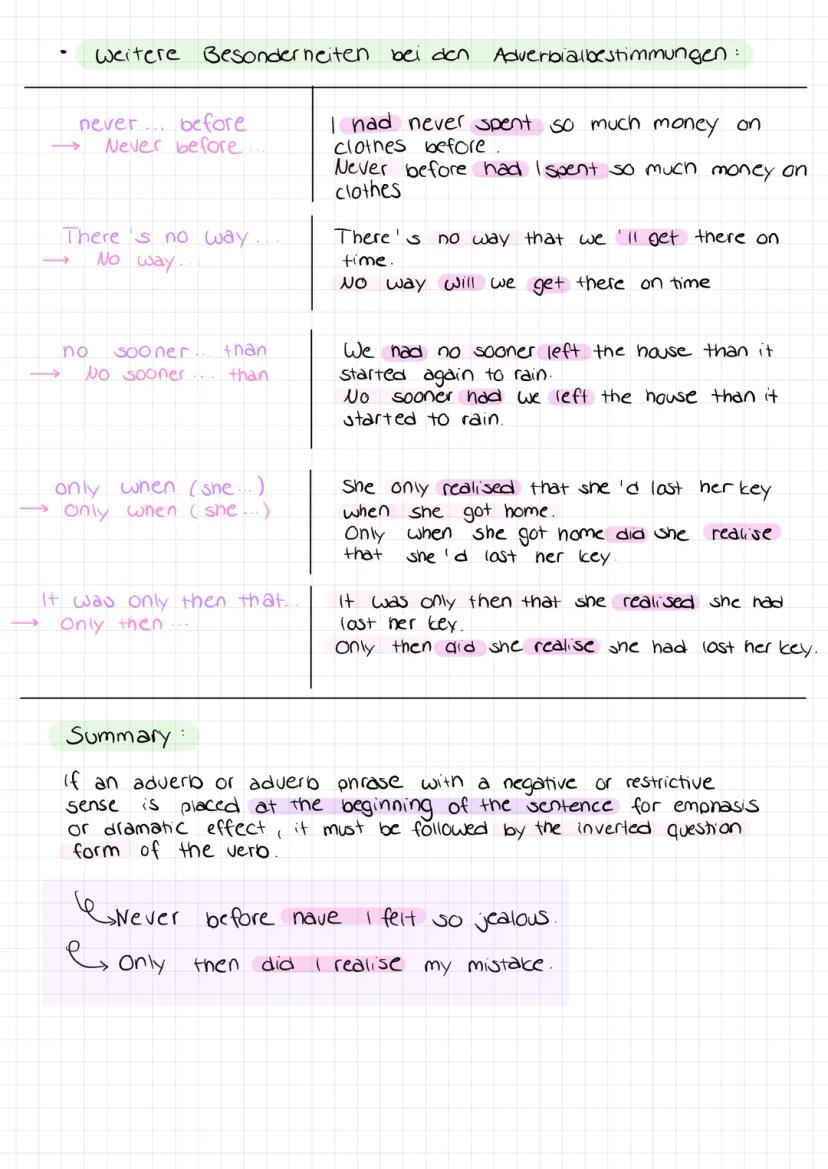 • Weitere Besonderheiten bei den Adverbialbestimmungen:
never... before
→ Never before...
I had never spent so much money on
clothes before.
Never before had I spent so much money on
clothes
There's no way...
→ No way...
There's no way that we 'll get there on
time.
No way will we get there on time
no sooner... than
→ No sooner... than
We had no sooner left the house than it
started again to rain.
No sooner had we left the house than it
started to rain.
only when (she...)
→ Only when (she...)
She only realised that she'd lost her key
when she got home.
Only when she got home did she realise
that she'd lost her key.
It was only then that...
→ Only then...
It was only then that she realised she had
lost her key.
Only then did she realise she had lost her key.
Summary:
If an adverb or adverb phrase with a negative or restrictive
sense is placed at the beginning of the sentence for emphasis
or dramatic effect, it must be followed by the inverted question
form of the verb.
Never before have I felt so jealous.
Only then did I realise my mistake.